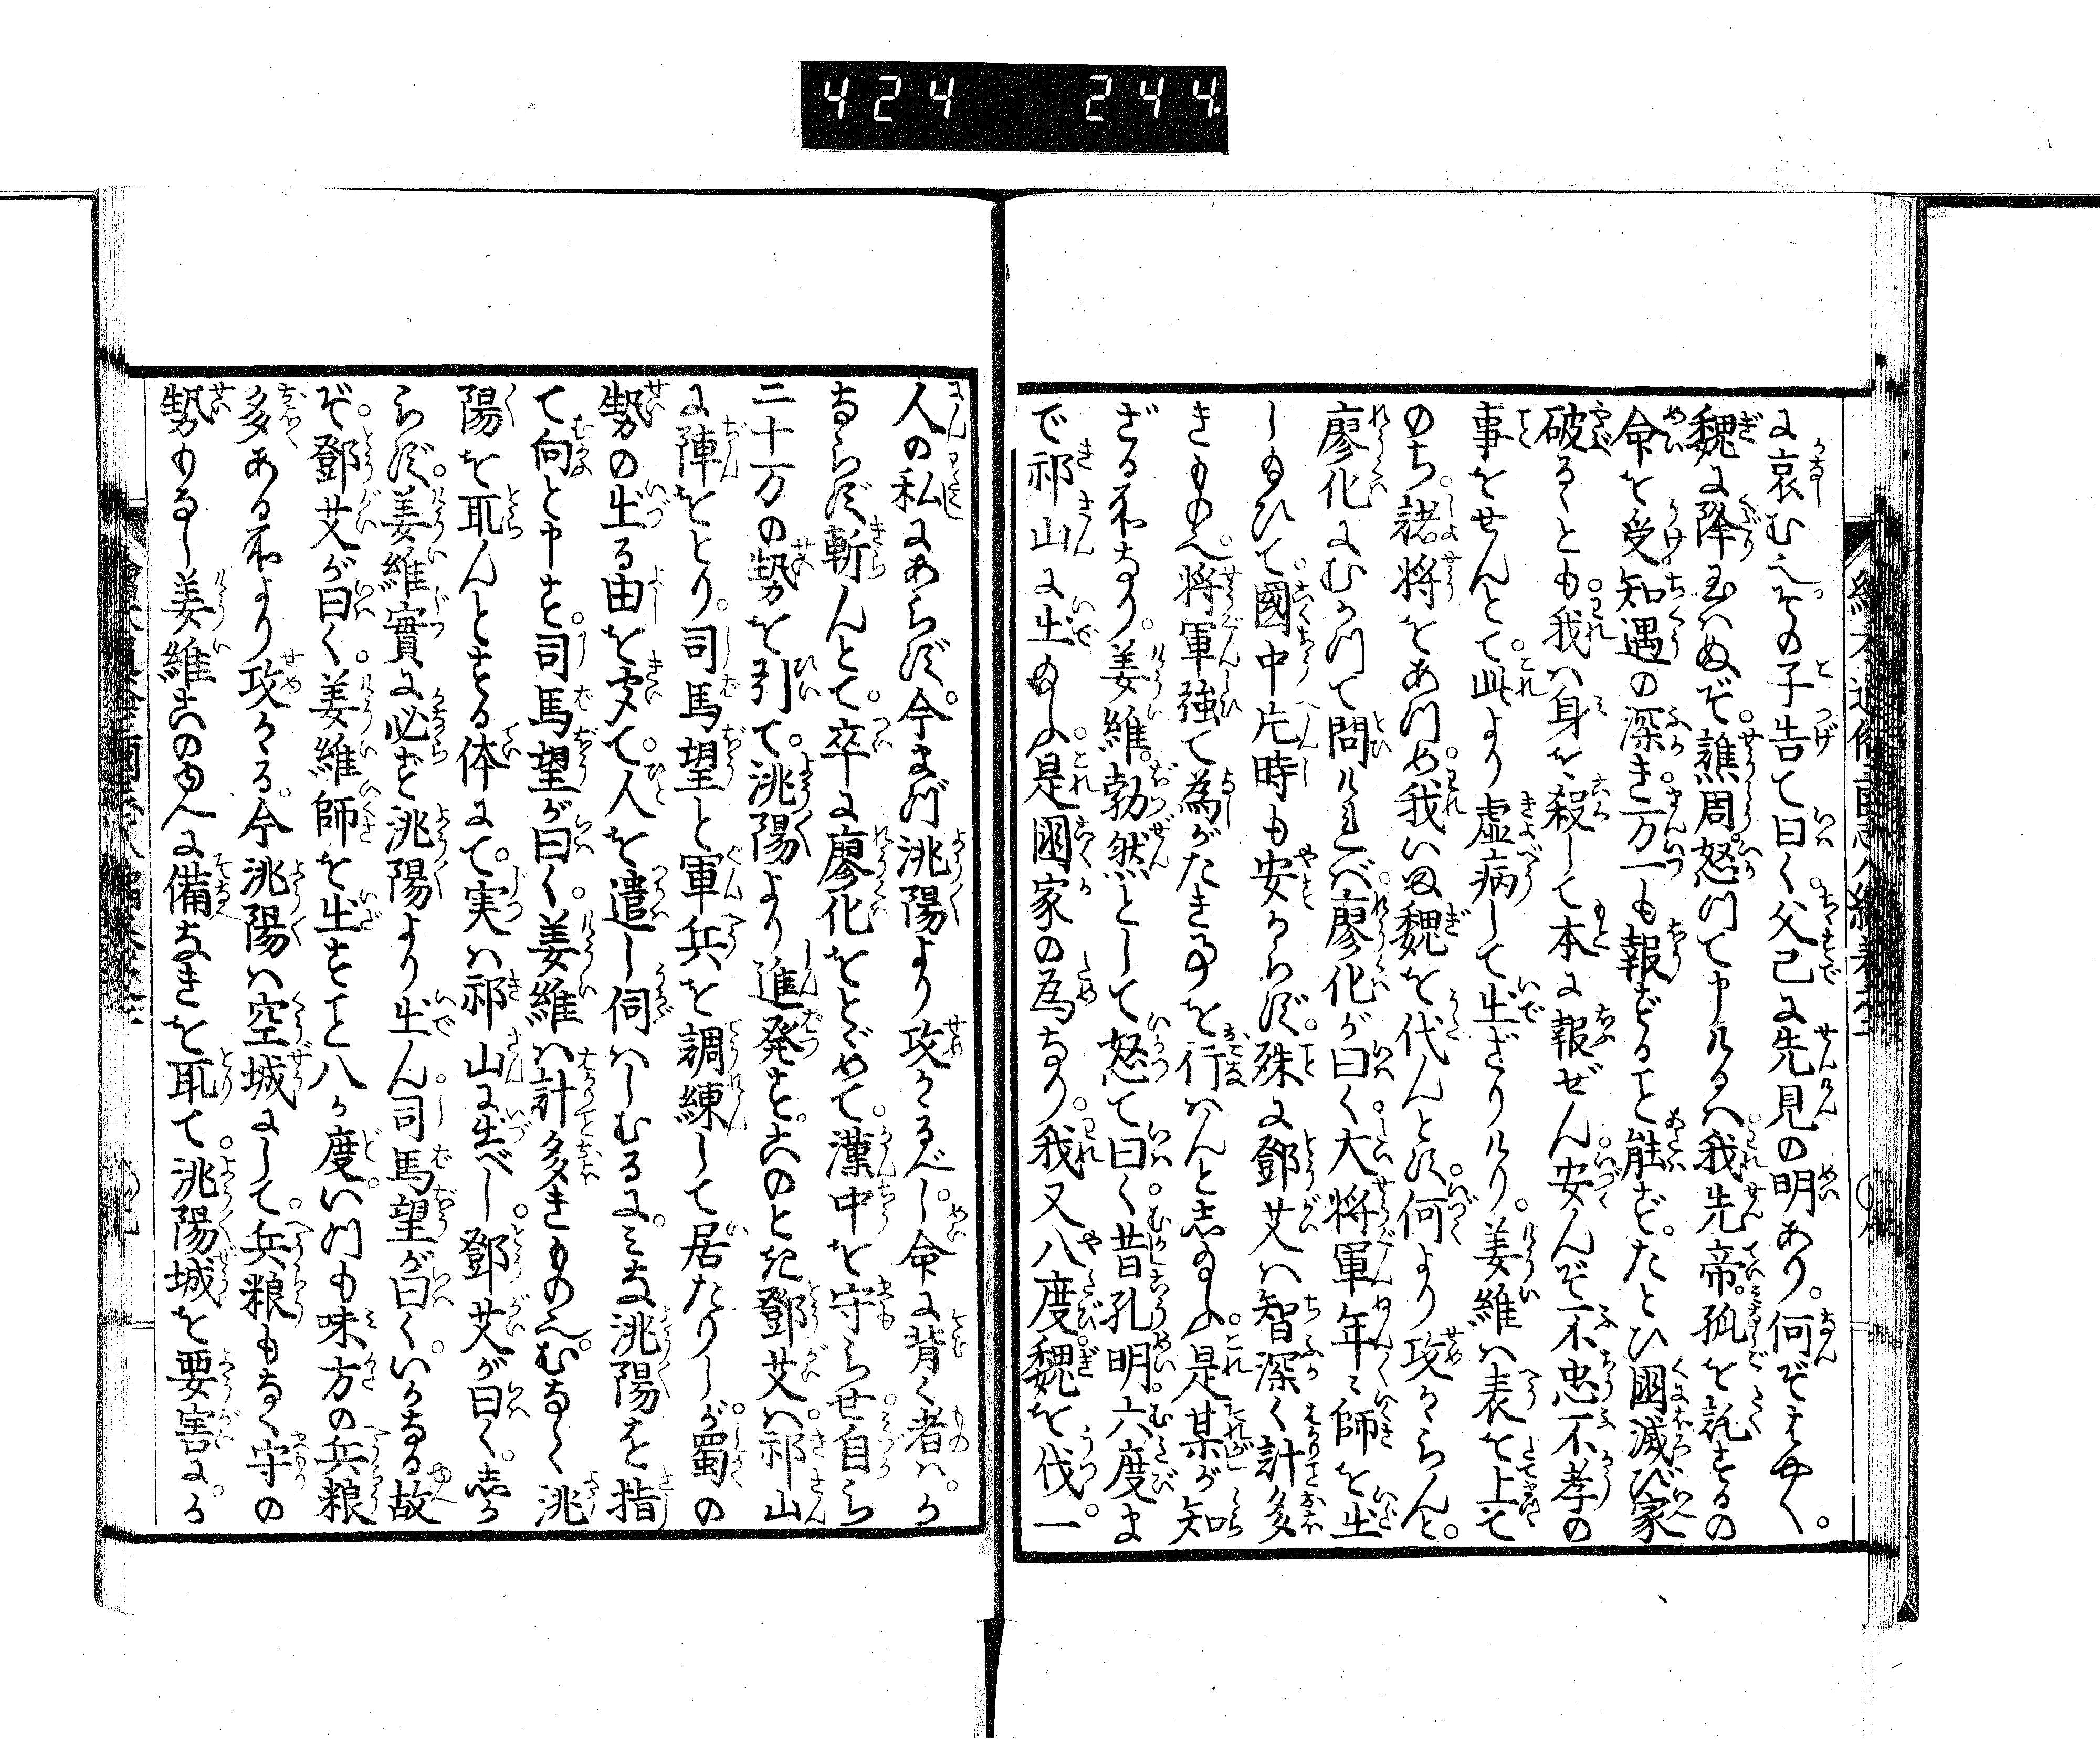 424 244
に哀むその子告て曰く父已に先見の明あり。何ぞはやく
魏に降玉はぬぞ。譙周怒つて申けるは我先帝。孤を託するの
命を受。知遇の深き。万一も報ざること能ず。たとひ國滅び家
破るゝとも。我は身を殺して本に報ぜん。安んぞ不忠不孝の
事をせんとて。此より虚病して出ざりけり。姜維は表を上て
のち。諸将をあつめ。我いま魏を伐んとす。何より攻からんと。
廖化にむかつて問ければ。廖化が曰く。大将軍年〻師を出
しゐひて。國中片時も安からず。殊に鄧艾は智深く計多
きもの也。将軍強て為がたき事を行はんとしゐふ。是某が知
ざる所なり。姜維。勃然として怒て曰く。昔孔明。六度ま
で祁山に出ゐふ。是國家の為なり。我又八度。魏を伐。一
人の私にあらず。今まづ洮陽より攻かるべし。命に背く者は。か
ならず斬んとて。卒に廖化をとゞめて。漢中を守らせ。自ら
二十万の勢を引て。洮陽より進発す。このとき鄧艾は。祁山
に陣をとり。司馬望と軍兵を調練して居たりしが。蜀の
勢の出る由を聞て。人を遣し伺はしむるに。みな洮陽を指
て向と申す。司馬望が曰く。姜維は計多きもの也。むなしく洮
陽を取んとする体にて。実は祁山に出べし。鄧艾が曰く。しか
らず。姜維實に必ず洮陽より出ん。司馬望が曰く。いかなる故
ぞ。鄧艾が曰く。姜維師を出すこと八か度。いつも味方の兵粮
多ある所より攻かる。今洮陽は空城にして。兵粮もなく守の
勢もなし。姜維このゆへに備なきを取て。洮陽城を要害に。か